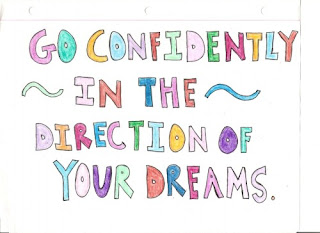 GO CONFIDENTLY
~ IN THE ~
DIRECTION OF
YOUR DREAMS.